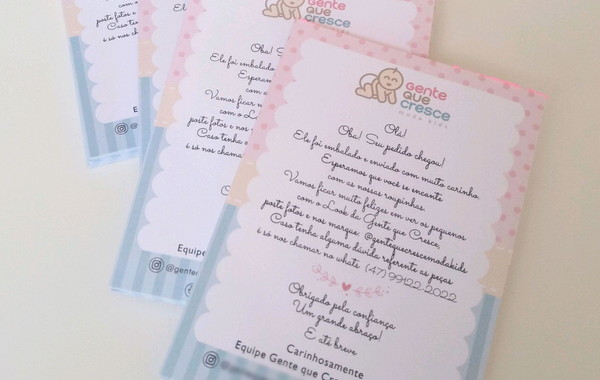 Gente
que
cresce
moda kids
Olá!
Oba! Seu pedido chegou!
Ele foi embalado e enviado com muito carinho.
Esperamos que você se encante
com as nossas roupinhas.
Vamos ficar muito felizes em ver os pequenos
com o Look da Gente que Cresce,
poste fotos e nos marque: @gentequecrescemodakids
Caso tenha alguma dúvida referente as peças
é só nos chamar no whats (47) 99122-2022
Obrigado pela confiança
Um grande abraço!
E até breve
Carinhosamente
Equipe Gente que
Gente
que
cresce
Oba!
Ele foi embalado
Esperamos
com a
Vamos ficar
com o
poste fotos e nos
Caso tenha
é só nos chama
Equipe